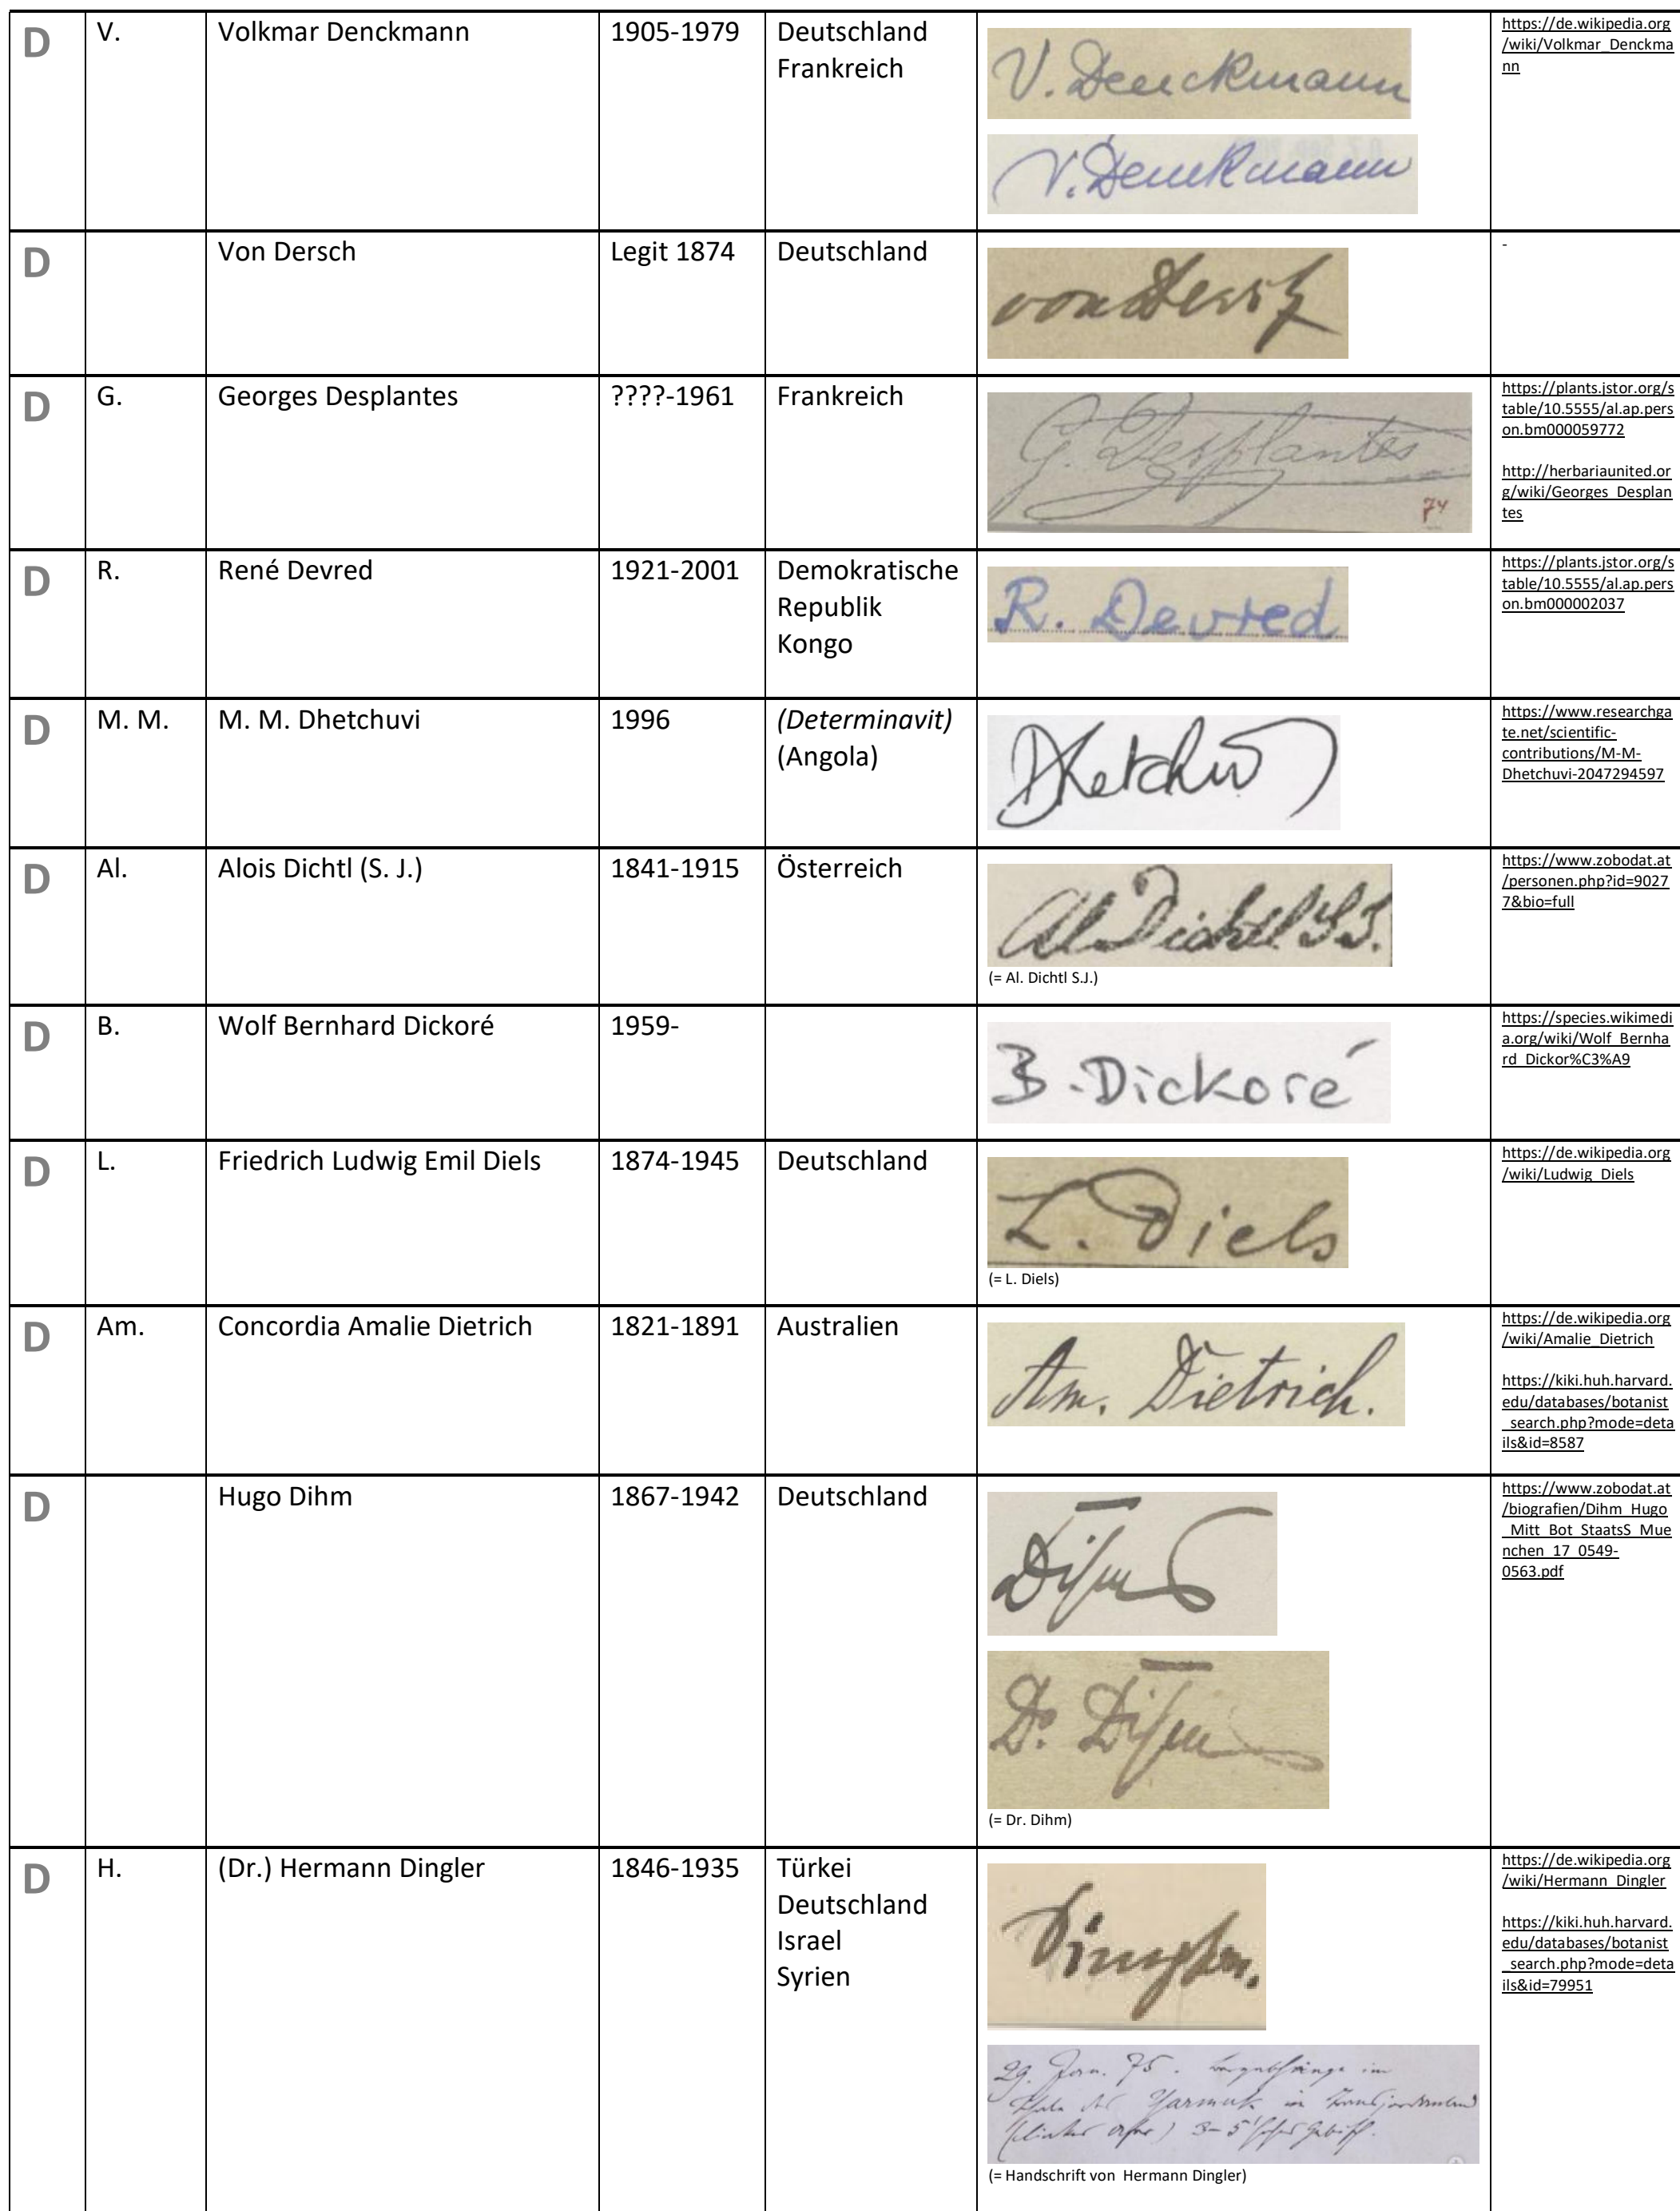 D V. Volkmar Denckmann 1905-1979 Deutschland
Frankreich
V. Denckmann
V. Denckmann
https://de.wikipedia.org
/wiki/Volkmar_Denckma
nn
D Von Dersch Legit 1874 Deutschland
von Dersch
-
D G. Georges Desplantes ????-1961 Frankreich
G. Desplantes
74
https://plants.jstor.org/s
table/10.5555/al.ap.pers
on.bm000059772
http://herbariaunited.or
g/wiki/Georges_Desplan
tes
D R. René Devred 1921-2001 Demokratische
Republik
Kongo
R. Devred
https://plants.jstor.org/s
table/10.5555/al.ap.pers
on.bm000002037
D M. M. M. M. Dhetchuvi 1996 (Determinavit)
(Angola)
Dhetchuvi
https://www.researchga
te.net/scientific-
contributions/M-M-
Dhetchuvi-2047294597
D Al. Alois Dichtl (S. J.) 1841-1915 Österreich
Al. Dichtl S.J.
(= Al. Dichtl S.J.)
https://www.zobodat.at
/personen.php?id=9027
7&bio=full
D B. Wolf Bernhard Dickoré 1959-
B. Dickoré
https://species.wikimedi
a.org/wiki/Wolf_Bernha
rd_Dickor%C3%A9
D L. Friedrich Ludwig Emil Diels 1874-1945 Deutschland
L. Diels
(= L. Diels)
https://de.wikipedia.org
/wiki/Ludwig_Diels
D Am. Concordia Amalie Dietrich 1821-1891 Australien
Am. Dietrich.
https://de.wikipedia.org
/wiki/Amalie_Dietrich
https://kiki.huh.harvard.
edu/databases/botanist
_search.php?mode=deta
ils&id=8587
D Hugo Dihm 1867-1942 Deutschland
Dihm
Dr. Dihm
(= Dr. Dihm)
https://www.zobodat.at
/biografien/Dihm_Hugo
_Mitt_Bot_StaatsS_Mue
nchen_17_0549-
0563.pdf
D H. (Dr.) Hermann Dingler 1846-1935 Türkei
Deutschland
Israel
Syrien
Dingler.
29. Jan. 75. Bergabhänge im
Thale des Yarmuk in Transjordanland
(linkes Ufer) 3-5' hohes Gebüsch.
(= Handschrift von Hermann Dingler)
https://de.wikipedia.org
/wiki/Hermann_Dingler
https://kiki.huh.harvard.
edu/databases/botanist
_search.php?mode=deta
ils&id=79951